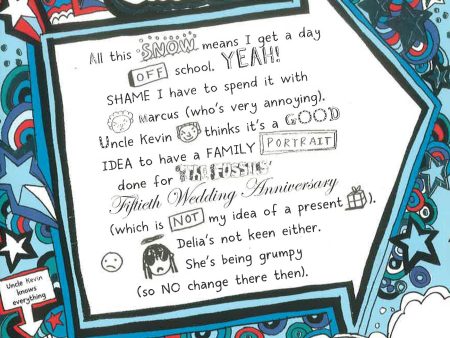 All this SNOW means I get a day
OFF school. YEAH!
SHAME I have to spend it with
Marcus (who's very annoying).
Uncle Kevin thinks it's a GOOD
IDEA to have a FAMILY PORTRAIT
done for "THE FOSSILS"
Fiftieth Wedding Anniversary
(which is NOT my idea of a present).
Delia's not keen either.
She's being grumpy
(so NO change there then).
Uncle Kevin
knows
everything